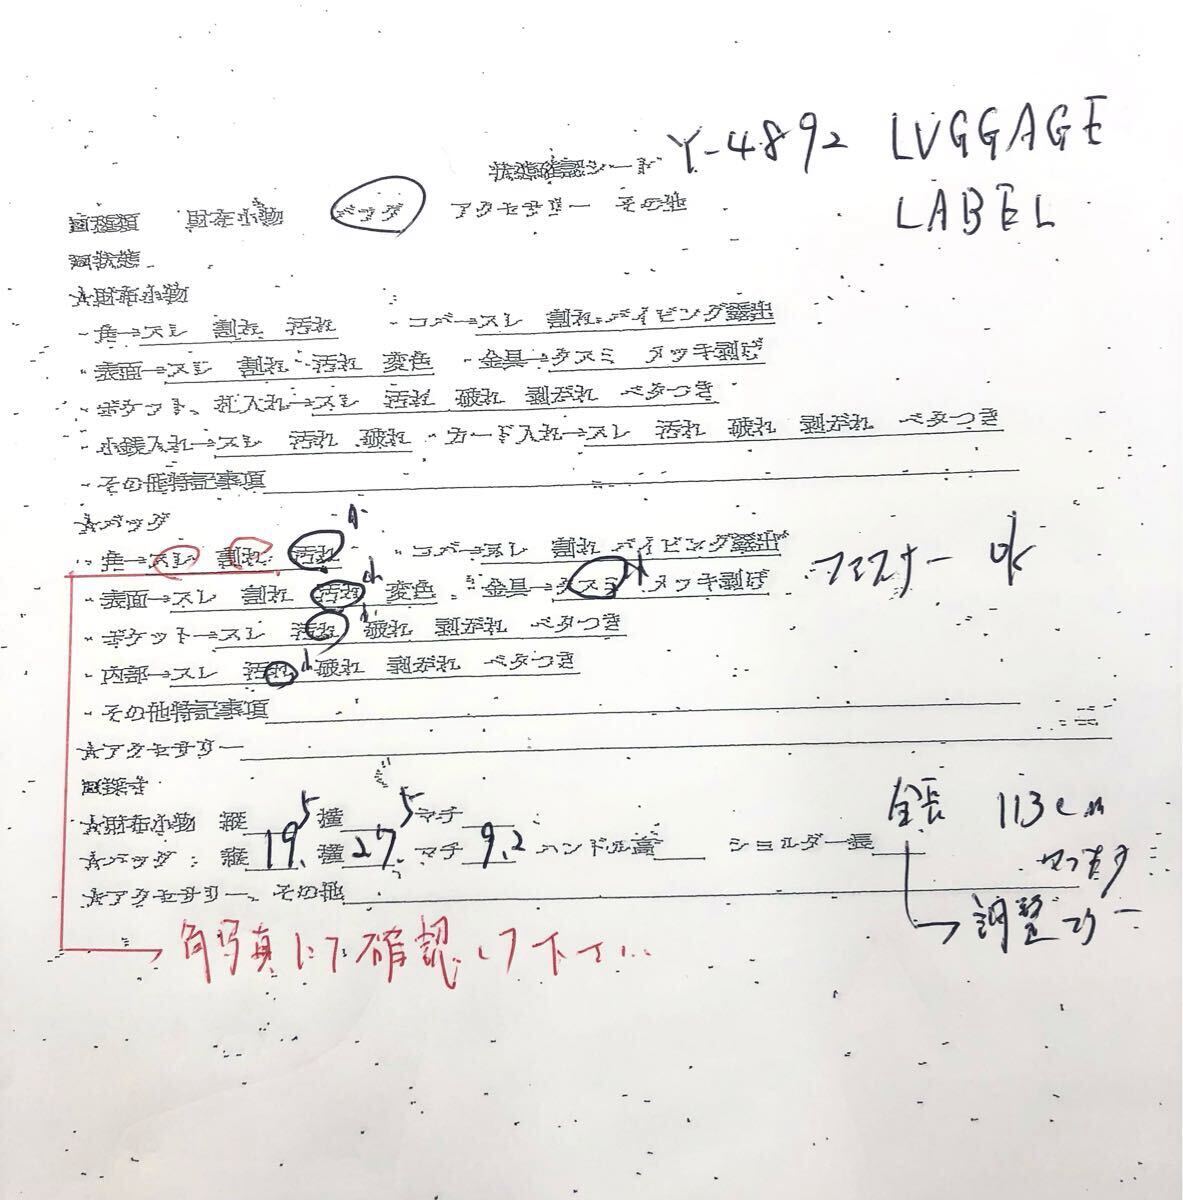 状態確認シート Y-4892 LUGGAGE
LABEL
種類 財布小物 バッグ アクセサリー その他
状態
★財布小物
・角→スレ 割れ 汚れ ・コバ→スレ 割れ パイピング露出
・表面→スレ 割れ 汚れ 変色 ・金具→クスミ メッキ剥げ
・ポケット、札入れ→スレ 汚れ 破れ 剥がれ ベタつき
・小銭入れ→スレ 汚れ 破れ ・カード入れ→スレ 汚れ 破れ 剥がれ ベタつき
・その他特記事項
★バッグ
・角→スレ 割れ 汚れ 小 ・コバ→スレ 割れ パイピング露出
・表面→スレ 割れ 汚れ 小 変色 ・金具→クスミ 小 メッキ剥げ ファスナー ok
・ポケット→スレ 汚れ 小 破れ 剥がれ ベタつき
・内部→スレ 汚れ 小 破れ 剥がれ ベタつき
・その他特記事項
★アクセサリー
★財布小物 縦 横 マチ 全長 113cm
★バッグ:縦 19.5 横 27.5 マチ 9.2 ハンドル高 ショルダー長
★アクセサリー、その他 調整可
角写真にて確認して下さい